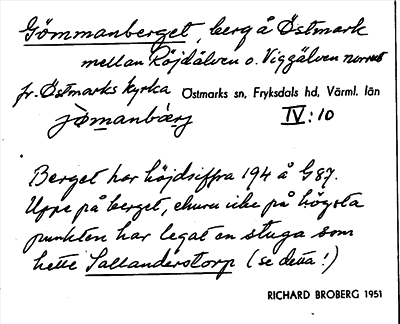 Gömmanberget, berg å Östmark
mellan Röjdälven o. Viggälven norrut
fr. Östmarks kyrka Östmarks sn, Fryksdals hd, Värml. län
jömanbærj IV:10
Berget har höjdsiffra 194 å G87.
Uppe på berget, ehuru icke på högsta
punkten har legat en stuga som
hette Sallanderstorp (se detta!)
RICHARD BROBERG 1951